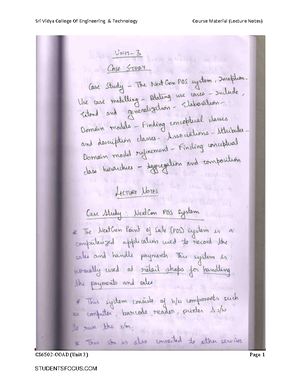 Sri Vidya College Of Engineering & Technology Course Material (Lecture Notes)
UNIT-3
CASE STUDY
Case Study - The NextGen POS system, Inception.
Use case modelling - Relating use cases - Include,
Extend and generalization - Elaboration -
Domain models - Finding conceptual classes
and description classes - Associations - Attributes -
Domain model refinement - Finding conceptual
class hierarchies - Aggregation and composition
LECTURE NOTES
Case Study : NextGen POS System
* The NextGen Point of Sale (POS) system is a
computerized application used to record the
sales and handle payments. This system is
normally used at retail shops for handling
the payments and sales.
* This system consists of h/w components such
as computer, barcode reader, printer & s/w
to run the s/m.
* This s/m is also connected to other services
CS6502-OOAD (Unit 3) Page 1
STUDENTSFOCUS.COM